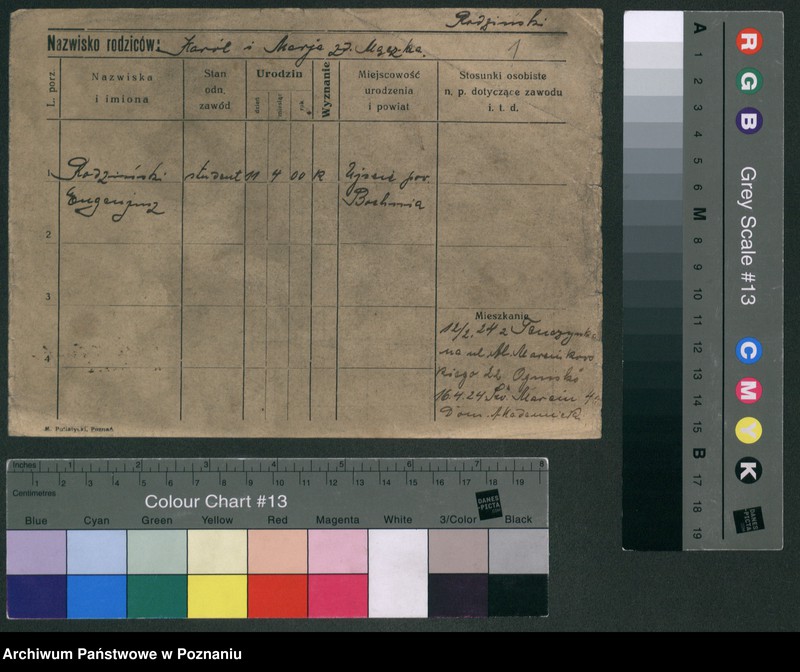 Rodziński
Nazwisko rodziców: Karól i Marja zd. Mączka.
1
L. porz.
Nazwiska
i imiona
Stan
odn.
zawód
Urodzin
dzień
miesiąc
rok
Wyznanie
Miejscowość
urodzenia
i powiat
Stosunki osobiste
n. p. dotyczące zawodu
i. t. d.
1 Rodziński student 11 4 00 R Ujście pow.
Eugenjusz Bochnia
2
3
4
Mieszkanie
12/2.24 z Tenczynka
na ul. Al. Marcinkow
kiego 22
16.4.24 Św. Marcin 40
Dom Akademick
M. Putiatycki, Poznań
Inches 1 2 3 4 5 6 7 8
1 2 3 4 5 6 7 8 9 10 11 12 13 14 15 16 17 18 19
Centimetres
Colour Chart #13
DANES
PICTA
.COM
Blue Cyan Green Yellow Red Magenta White 3/Color Black
Grey Scale #13
R G B C M Y K
A 1 2 3 4 5 6 M 8 9 10 11 12 13 14 15 B 17 18 19
DANES
PICTA
.COM
Archiwum Państwowe w Poznaniu